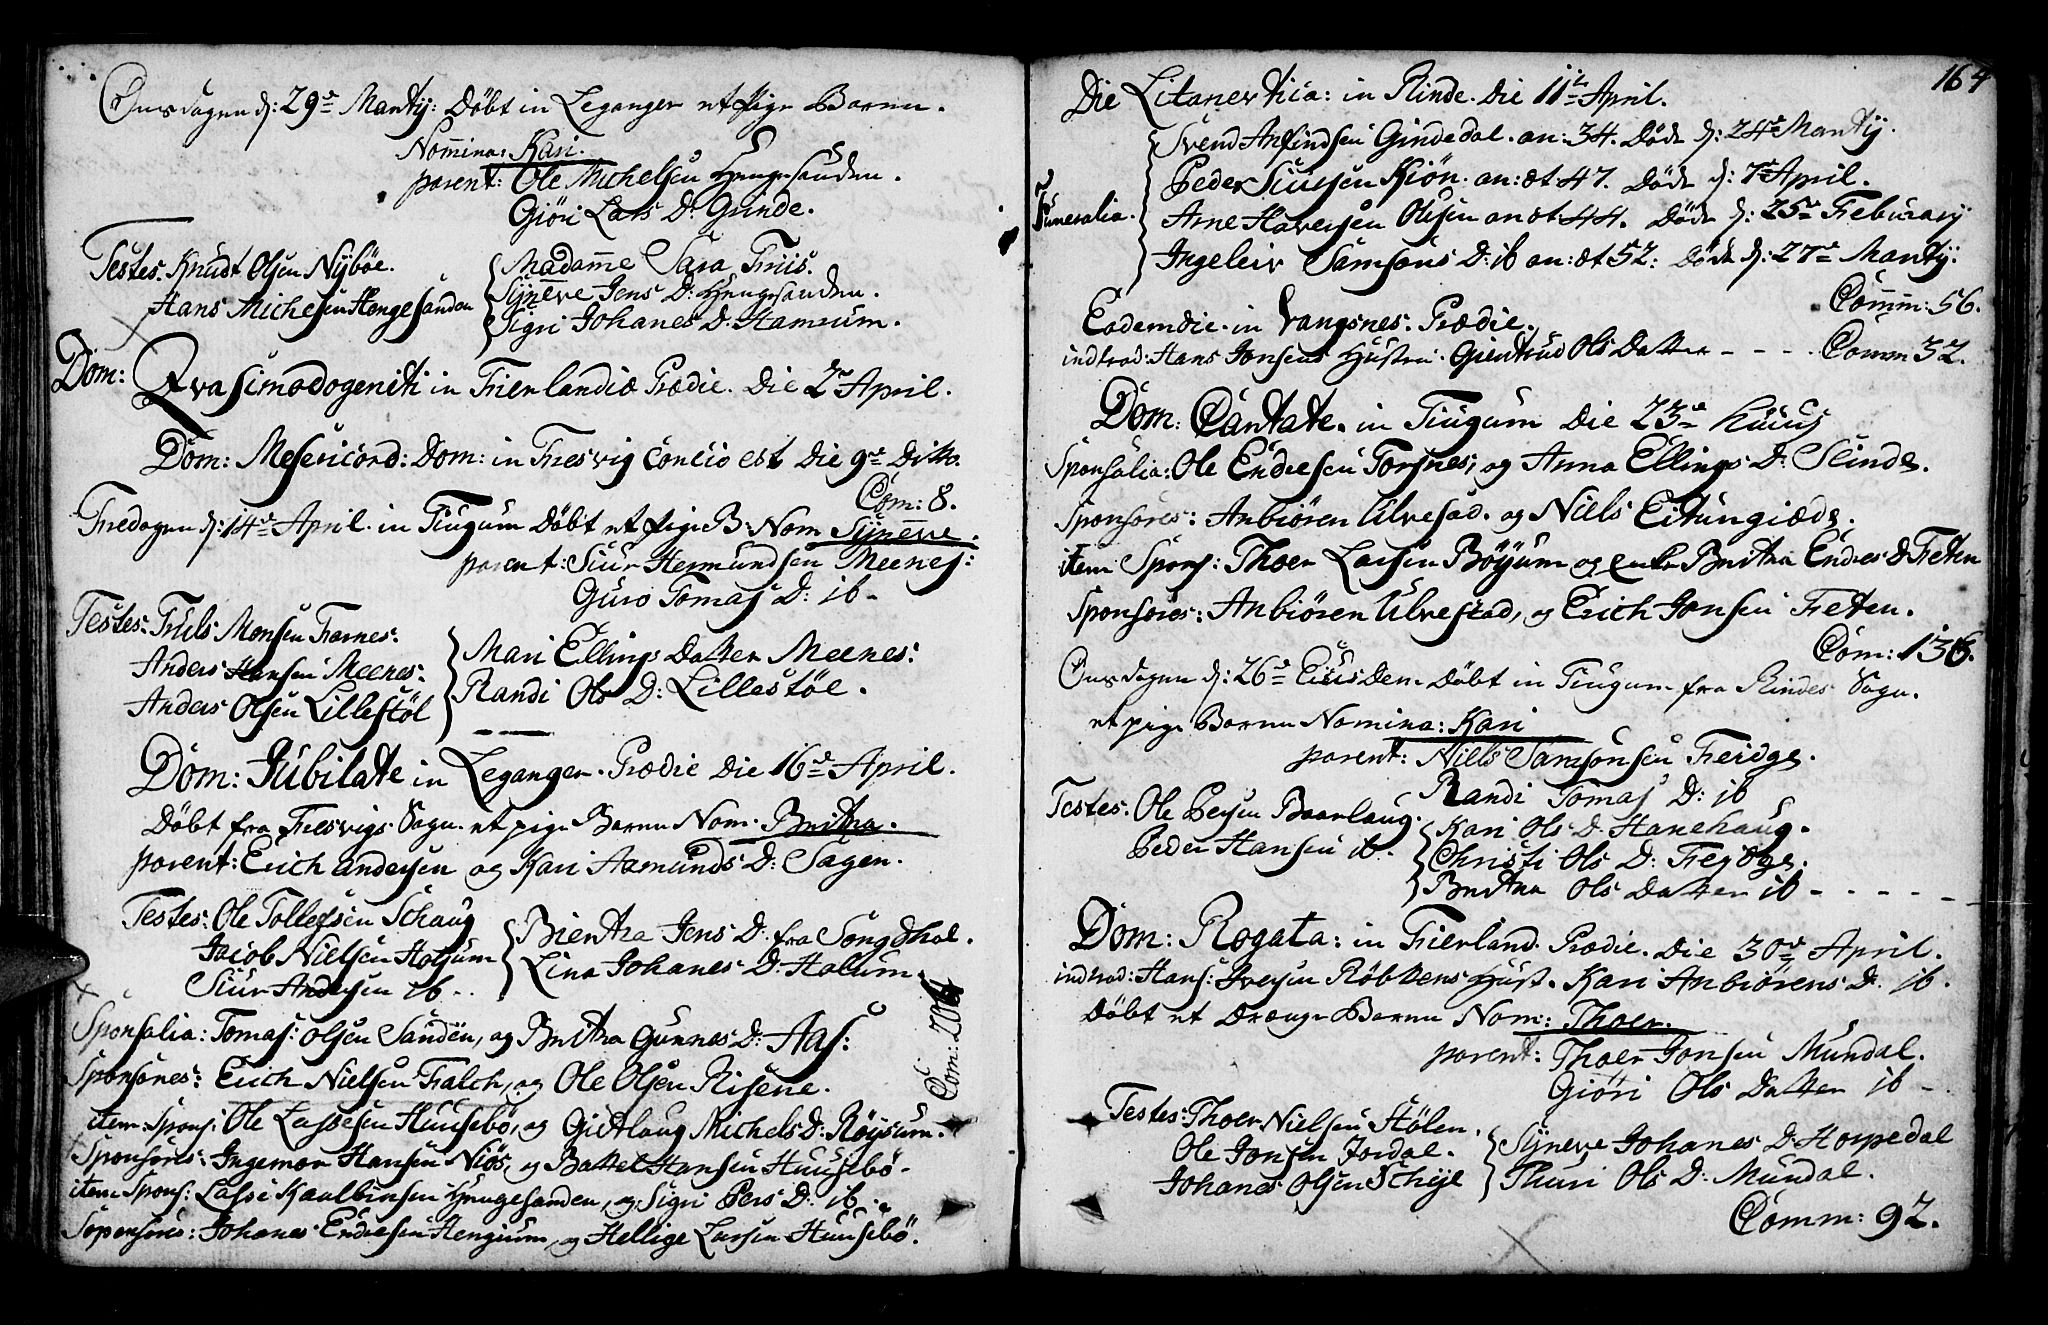 Onsdagen d: 29de Martij: Døbt in Leganger et Pige Barnn.
Nomina: Kari.
parent: Ole Michelsen Hengesanden.
Giøri Lars D: Grinde.
Testes: Knudt Olsen Nybøe.
Hans Michelsen Hengesanden
Madame Sara Friis.
Syneve Jens D: Hengesanden.
Sigri Johanes D: Hamrum.
Dom: Qvasimodogeniti in Fierlandiæ Prædie. Die 2de April.
Dom: Mesericord: Dom: in Fresvig Concio est Die 9de Ditto.
Com: 8.
Fredagen d: 14de April. in Tiugum Døbt et pige B: Nom Syneve.
parent: Siur Hermundsen Meenes:
Guro Tomas D: ib-
Testes: Truls Monsen Farnes:
Anders Hansen Meenes:
Anders Olsen Lillestøl
Mari Ellings Datter Meenes:
Randi Ols D: Lillestøl.
Dom: Jubilate in Leganger. Prædie Die 16de April.
Døbt fra Fresvigs Sogn et pige Barnn Nom: Britha.
parent: Erich andersen og Kari Aamunds D: Sagen.
Testes: Ole Tollefsen Schaug
Jacob Nielsen Holum
Siur Andersen ib..
Biertha Jens D: fra Songdhal.
Lina Johanes D: Holum.
Sponsalia: Tomas: olsen Sanden, og Britha Gunnes D: Aas:
Sponsores: Erich Nielsen Falch, og Ole Olsen Risene.
Com: 204
item: Spons: Ole Lassesen Huusebø, og Giertlaug Michels D: Røysum.
Sponsores: Ingemor Hansen Niøs, og Battel Hansen Huusebø.
item Spons: Lasse Kaulbinsen Hengesanden, og Sigri Pers D: ib.
Sponsores: Johanes Endresen Hengium, og Hellige Larsen Huusebø.
164
Die Litanevtica: in Rinde. Die 11te April.
Funeralia.
Svend Anfindsen Gindedal. an: 34. Døde d: 24de Martij.
Peder Siursen Kiøn. an: æt 47. Døde d: 7de April.
Arne Haversen Olsen an æt: 44. Døde d: 25de Feburarij
Ingeleiv Samsons D: ib an: æt 52: Døde d: 27de Martij:
Comm: 56.
Eodem die. in Vangsnes. Prædie.
indtrod: Hans Jonsens Hustru. Giertrud Ols Datter - - - . Comm 32.
Dom: Cantate. in Tiugum Die 23de huus
Sponsalia: Ole Endresen Torsnes, og Anna Ellings D: Slinde.
Sponsores: Anbiören Ulvesad. og Niels Eitungiæde.
item Spons: Thoer Larsen Böyum og enke Britha Endres D Feten
Sponsores: Anbiören Ulvestad, og Erich Jonsen Feten.
Com: 136.
Onsdagen d: 26de Eiusdem Døbt in Tiugum fra Rindes Sogn.
et pige Barnn Nomina: Kari
parent: Niels Samsonsen Feidge.
Randi Tomas D: ib
Testes: Ole Persen Baarlaug.
Peder Hansen ib.
Kari Ols D. Hanehaug.
Christi Ols D: Fejøge.
Britha Ols Datter ib - - - -
Dom: Rogata: in Fierland. Prædie. Die 30de April.
indtrod: Hans: Iversen Röbkens Hust. Kari Anbiörens D: ib.
Døbt et Drænge Barnn Nom: Thoer.
parent: Thoer Jonsen Mundal.
Giöri Ols Datter ib -
Testes: Thoer Nielsen Stölen.
Ole Jonsen Jordal.
Johanes Olsen Scheje
Syneve Johanes D. Horpedal
Thuri Ols D: Mundal.
Comm: 92.